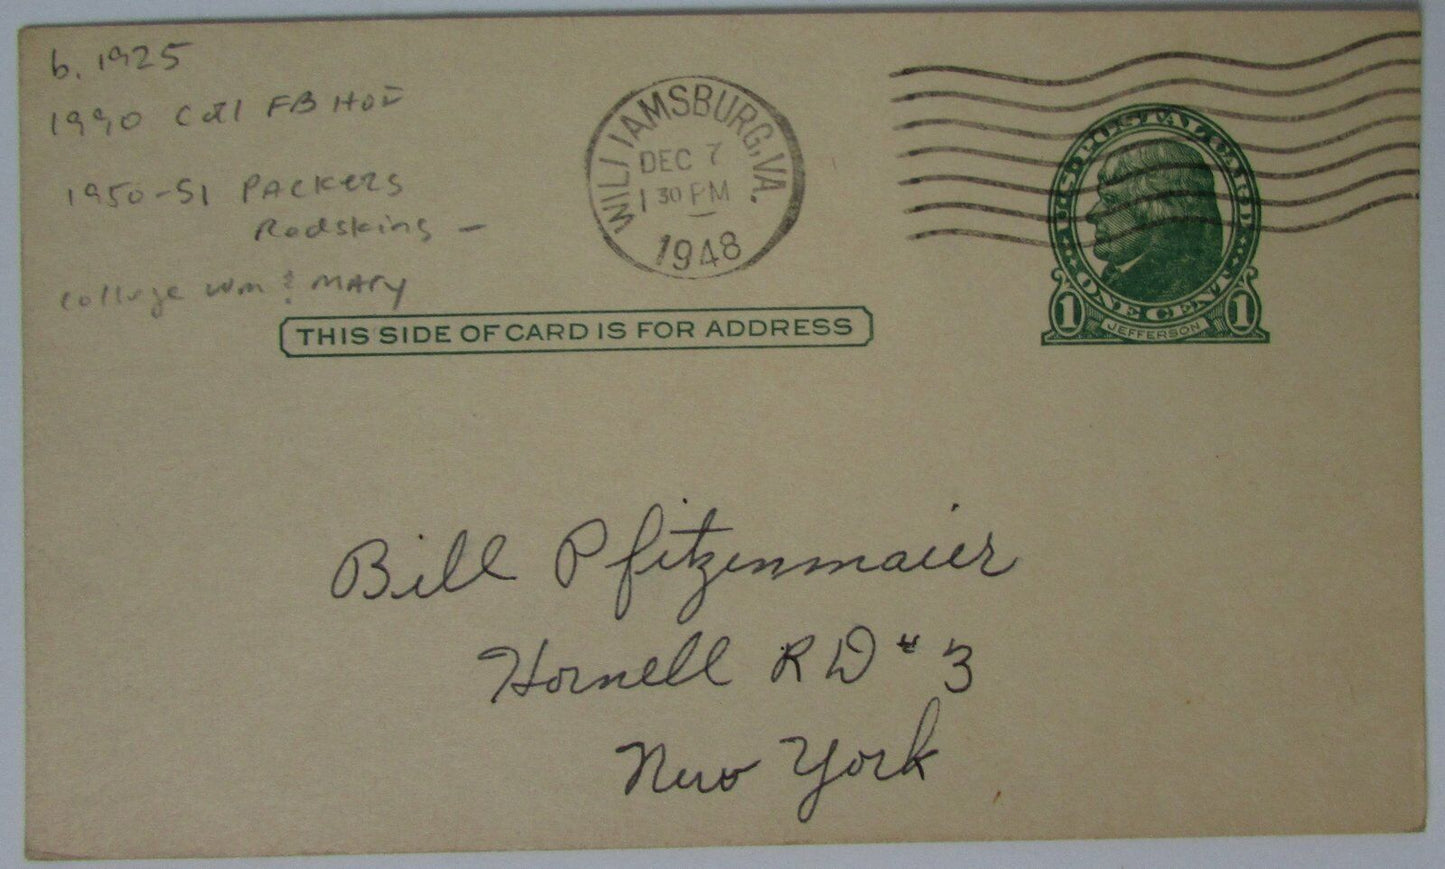 b. 1925
1990 Coll FB HOF
1950-51 PACKERS
Redskins -
College Wm & MARY
WILLIAMSBURG, VA.
DEC 7
1 30 PM
1948
U.S. POSTAL CARD
ONE CENT
1 JEFFERSON 1
THIS SIDE OF CARD IS FOR ADDRESS
Bill Pfitzenmaier
Hornell RD # 3
New York